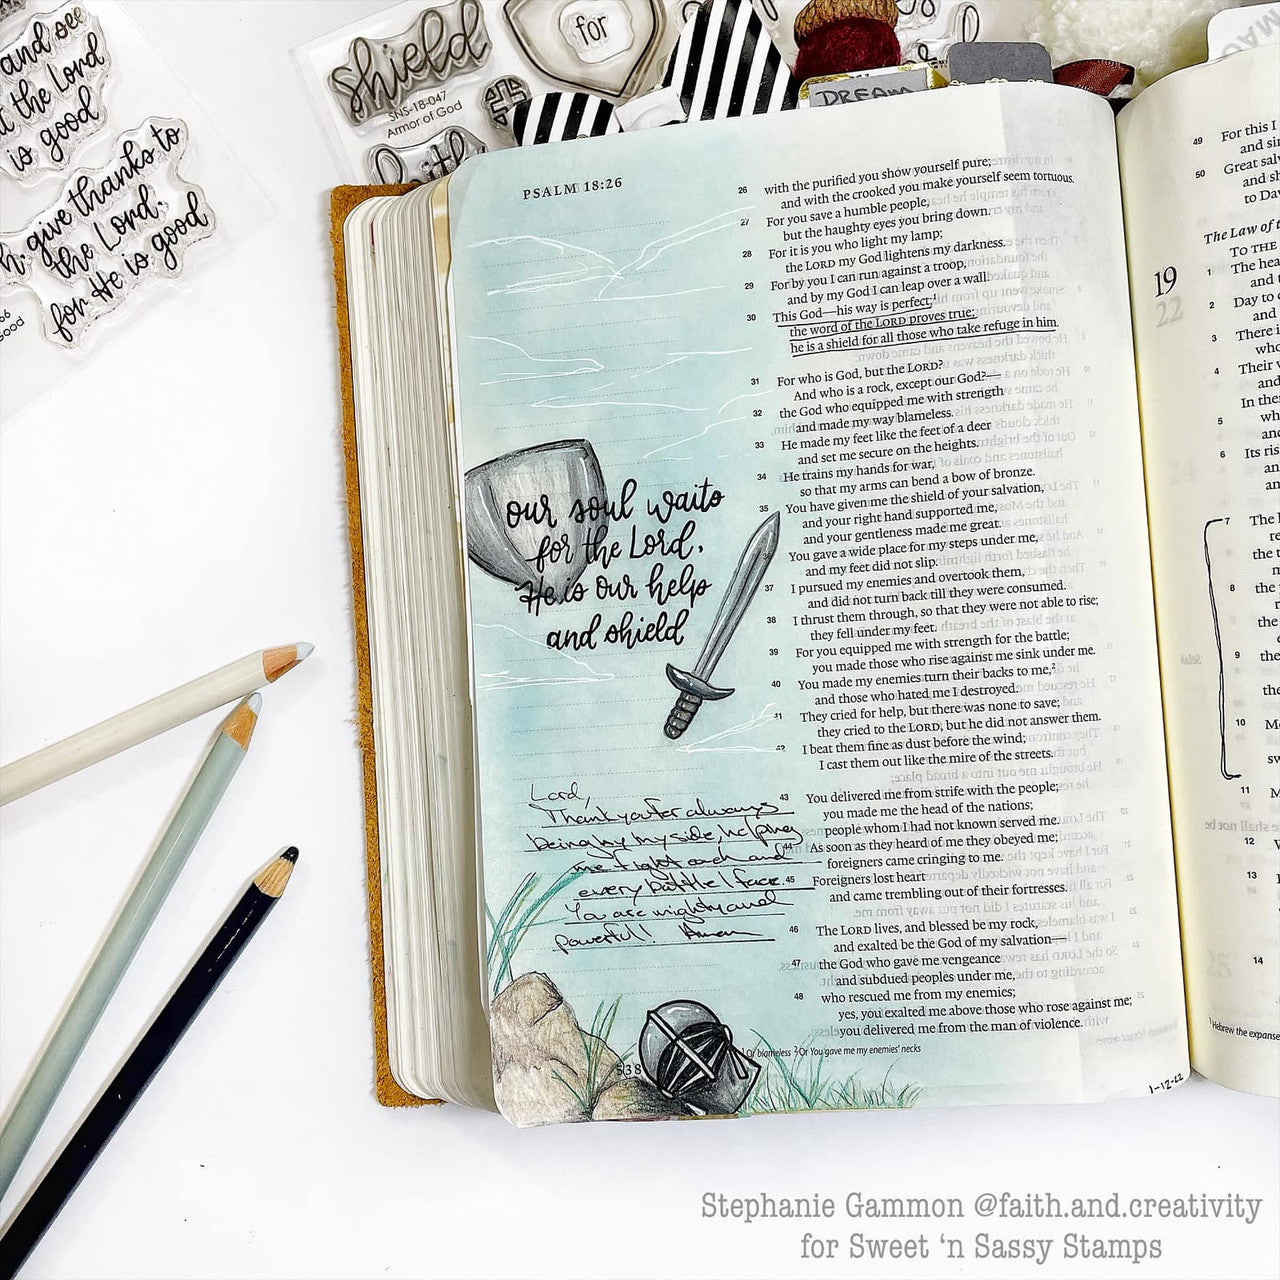 and see
at the Lord
is good
give thanks to
the Lord,
for He is good
66
Good
shield
SNS-18-047
Armor of God
for
faith
DREAM
PSALM 18:26
26 with the purified you show yourself pure;
and with the crooked you make yourself seem tortuous.
27 For you save a humble people,
but the haughty eyes you bring down.
28 For it is you who light my lamp;
the LORD my God lightens my darkness.
29 For by you I can run against a troop,
and by my God I can leap over a wall.
30 This God—his way is perfect;¹
the word of the LORD proves true;
he is a shield for all those who take refuge in him.
31 For who is God, but the LORD?
And who is a rock, except our God?—
32 the God who equipped me with strength
and made my way blameless.
33 He made my feet like the feet of a deer
and set me secure on the heights.
34 He trains my hands for war,
so that my arms can bend a bow of bronze.
35 You have given me the shield of your salvation,
and your right hand supported me,
and your gentleness made me great.
36 You gave a wide place for my steps under me,
and my feet did not slip.
37 I pursued my enemies and overtook them,
and did not turn back till they were consumed.
38 I thrust them through, so that they were not able to rise;
they fell under my feet.
39 For you equipped me with strength for the battle;
you made those who rise against me sink under me.
40 You made my enemies turn their backs to me,²
and those who hated me I destroyed.
41 They cried for help, but there was none to save;
they cried to the LORD, but he did not answer them.
42 I beat them fine as dust before the wind;
I cast them out like the mire of the streets.
43 You delivered me from strife with the people;
you made me the head of the nations;
people whom I had not known served me.
44 As soon as they heard of me they obeyed me;
foreigners came cringing to me.
45 Foreigners lost heart
and came trembling out of their fortresses.
46 The LORD lives, and blessed be my rock,
and exalted be the God of my salvation—
47 the God who gave me vengeance
and subdued peoples under me,
48 who rescued me from my enemies;
yes, you exalted me above those who rose against me;
you delivered me from the man of violence.
¹ Or blameless ² Or You gave me my enemies' necks
538
1-12-22
our soul waits
for the Lord,
He is our help
and shield
Lord,
Thank you for always
being by my side, helping
me fight each and
every battle I face.
You are mighty and
powerful! Amen
49 For this I
and sin
50 Great salv
and sh
to Dav
The Law of t
TO THE
19
1 The hea
and t
2 Day to
and
3 There i
who
4 Their
and
In them
5 wh
and
6 Its ris
an
an
7 The l
re
the t
m
8 the
the
9 the
the
10 Mo
sw
11 M
12
13
14
¹ Hebrew the expanse
Stephanie Gammon @faith.and.creativity
for Sweet ‘n Sassy Stamps